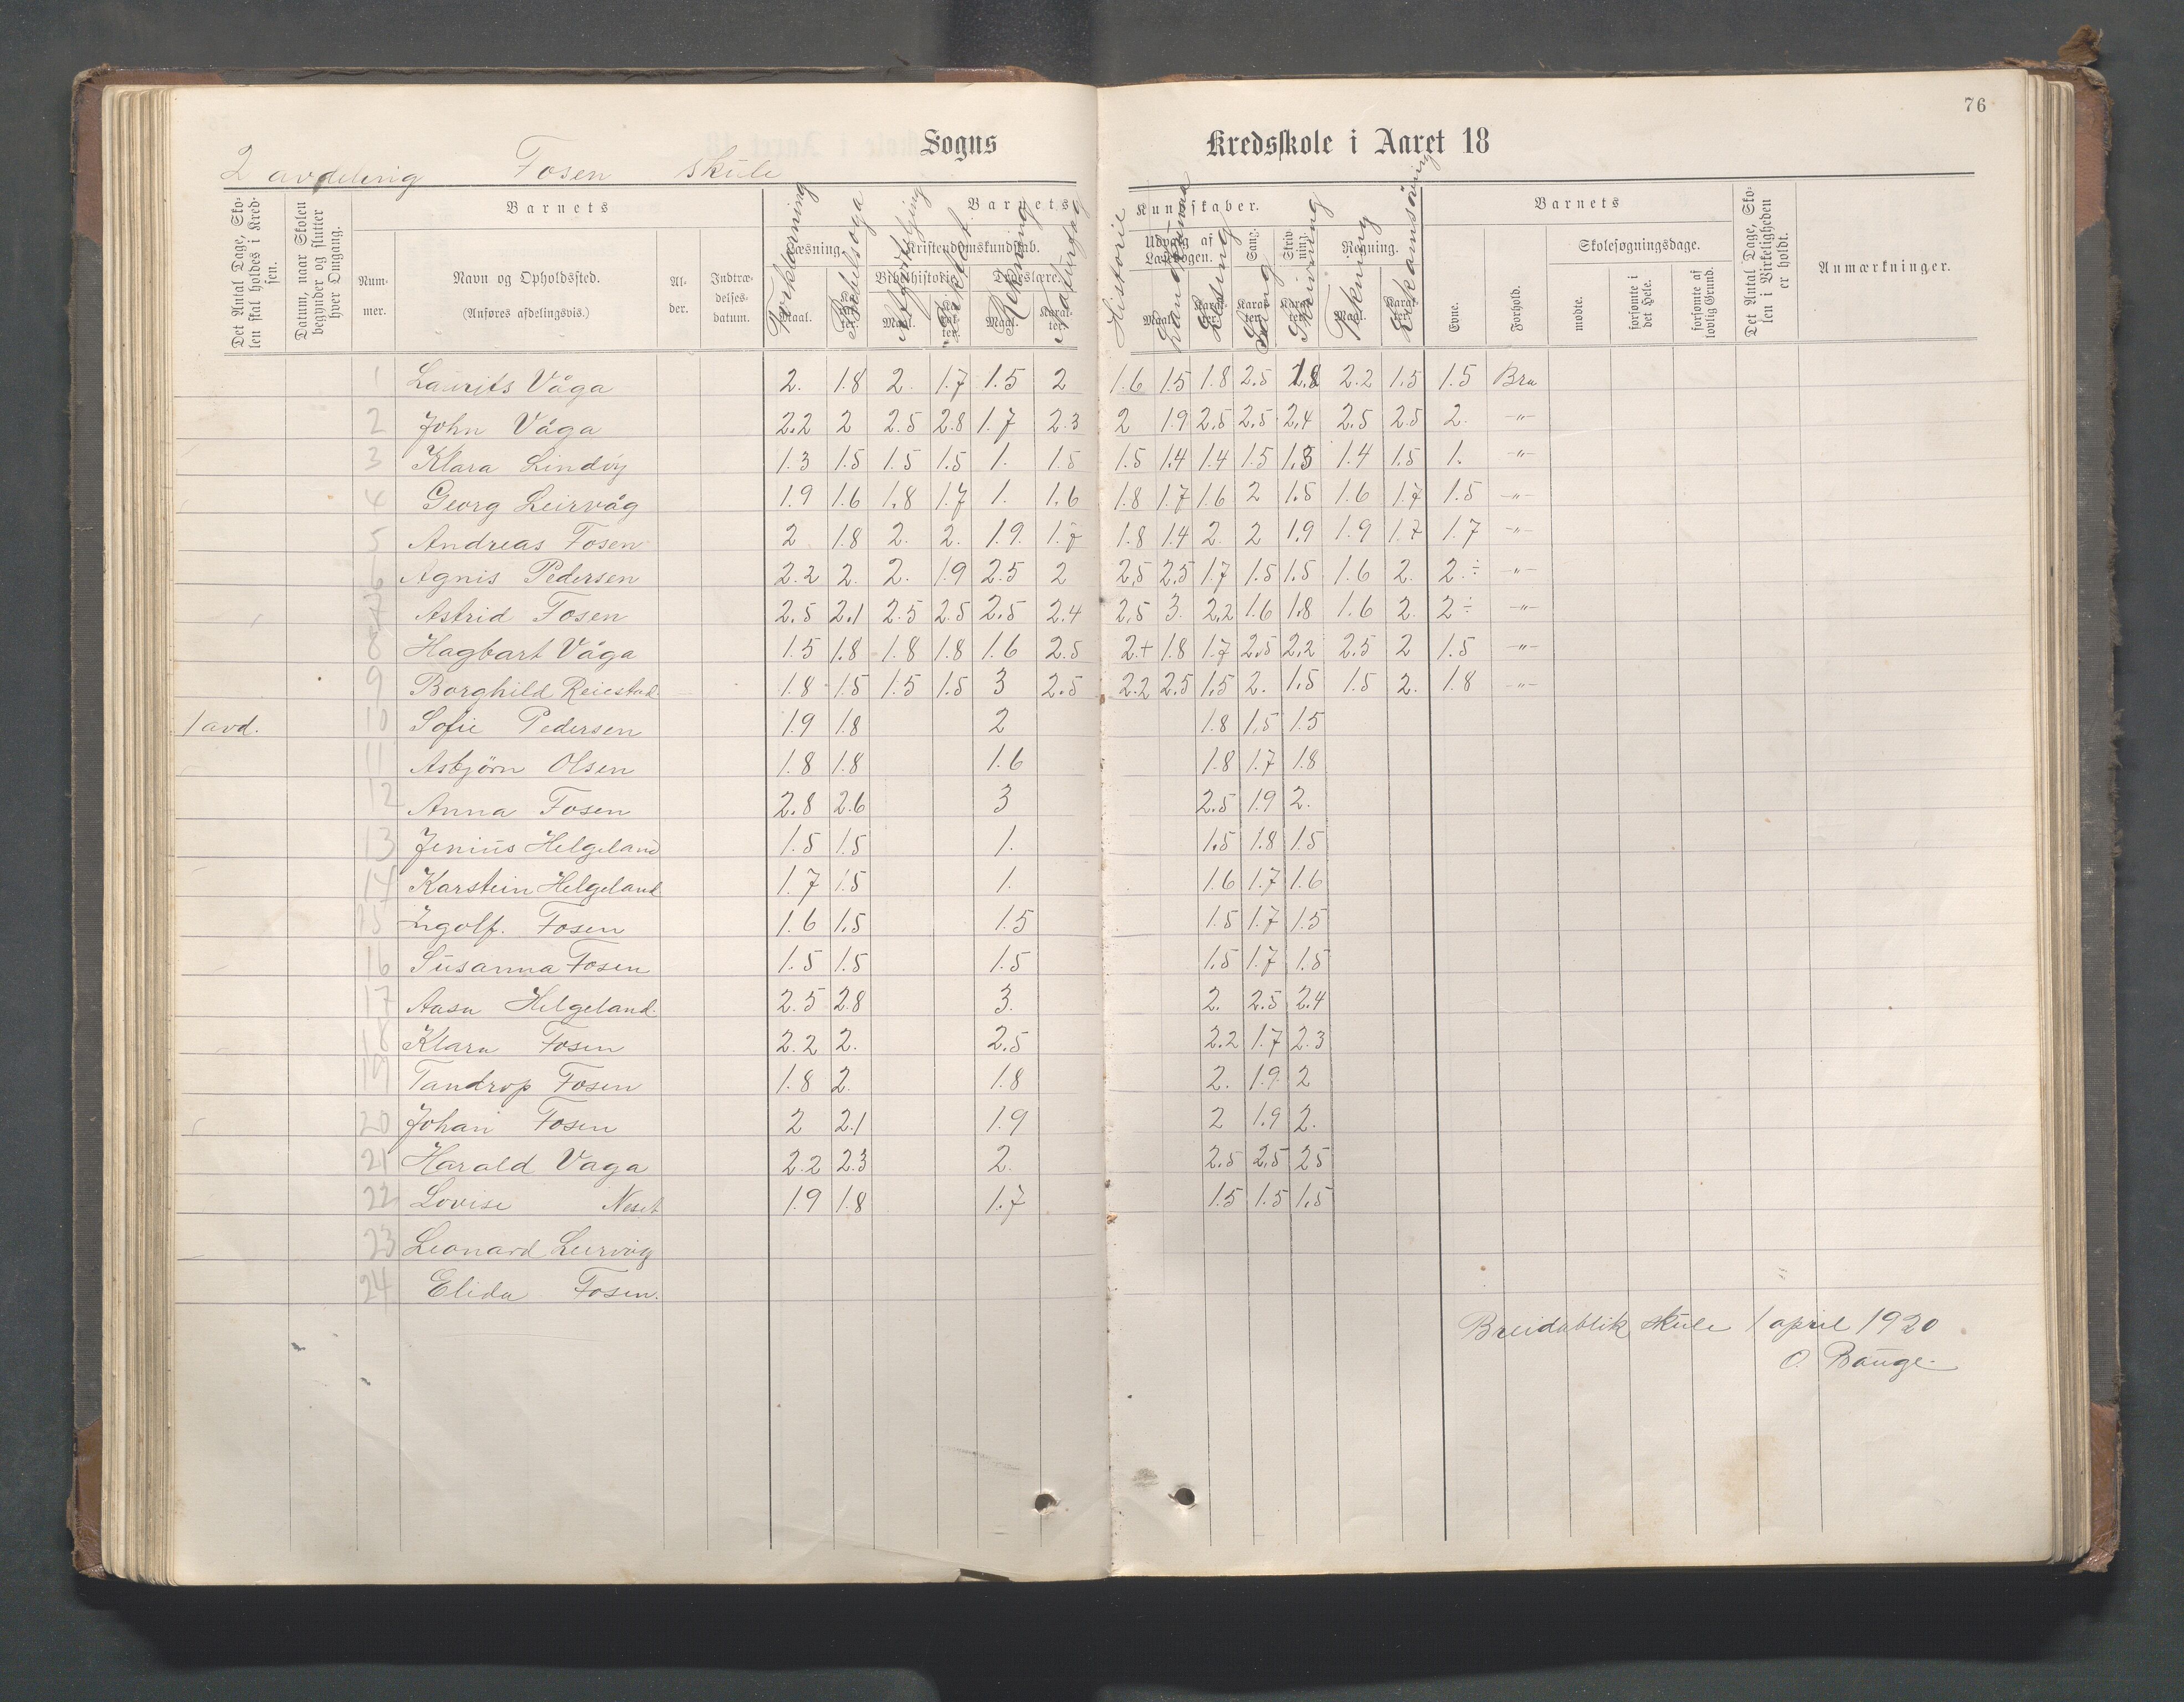 76
Sogns Kredsskole i Aaret 18
2 avdeling Fosen skule
Det Antal Dage, Skolen skal holdes i Kredsen.
Datum, naar Skolen begynder og slutter hver Omgang.
Barnets
Nummer.
Navn og Opholdssted.
(Anføres afdelingsvis.)
Alder.
Indtrædelsesdatum.
Barnets Kundskaber.
Læsning.
Kristendomskundskab.
Bibelhistorie.
Troeslære.
Udvalg af Læsebogen.
Sang.
Skrivning.
Regning.
Maal.
Karakter.
Forklaring
Bibelsoga
Rekning
Naturfag
Historie
Lesing
Sang
Skriving
Tekning
Barnets
Evne.
Forhold.
Skolesøgningsdage.
mødte.
forsømte i det Hele.
forsømte af lovlig Grund.
Det Antal Dage, Skolen i Virkeligheden er holdt.
Anmærkninger.
1 Laurits Våga 2. 1.8 2. 1.7 1.5 2 1.6 1.5 1.8 2.5 1.8 2.2 1.5 1.5 Bra
2 John Våga 2.2 2 2.5 2.8 1.7 2.3 2 1.9 2.5 2.5 2.4 2.5 2.5 2. -"-
3 Klara Lindöy 1.3 1.5 1.5 1.5 1. 1.5 1.5 1.4 1.4 1.5 1.3 1.4 1.5 1. -"-
4 Georg Leirvåg 1.9 1.6 1.8 1.7 1. 1.6 1.8 1.7 1.6 2 1.5 1.6 1.7 1.5 -"-
5 Andreas Fosen 2 1.8 2. 2. 1.9. 1.7 1.8 1.4 2. 2 1.9 1.9 1.7 1.7 -"-
6 Agnis Pedersen 2.2 2. 2. 1.9 2.5 2 2.5 2.5 1.7 1.5 1.5 1.6 2. 2.÷ -"-
7 Astrid Fosen 2.5 2.1 2.5 2.5 2.5 2.4 2.5 3. 2.2 1.6 1.8 1.6 2. 2÷ -"-
8 Hagbart Våga 1.5 1.8 1.8 1.8 1.6 2.5 2.+ 1.8 1.7 2.5 2.2 2.5 2 1.5 -"-
9 Borghild Reiestad 1.8 1.5 1.5 1.5 3 2.5 2.2 2.5 1.5 2. 1.5 1.5 2. 1.8 -"-
1 avd. 10 Sofie Pedersen 1.9 1.8 2 1.8 1.5 1.5
11 Asbjörn Olsen 1.8 1.8 1.6 1.8 1.7 1.8
12 Anna Fosen 2.8 2.6 3 2.5 1.9 2.
13 Jenius Helgeland 1.5 1.5 1. 1.5 1.8 1.5
14 Karstein Helgeland 1.7 1.5 1. 1.6 1.7 1.6
15 Ingolf. Fosen 1.6 1.5 1.5 1.5 1.7 1.5
16 Susanna Fosen 1.5 1.5 1.5 1.5 1.7 1.5
17 Aasa Helgeland. 2.5 2.8 3. 2. 2.5 2.4
18 Klara Fosen 2.2 2. 2.5 2.2 1.7 2.3
19 Tandrop Fosen 1.8 2. 1.8 2. 1.9. 2
20 Johan Fosen 2 2.1 1.9 2 1.9 2.
21 Harald Vaga 2.2 2.3 2. 2.5 2.5 25
22 Lovise Neset 1.9 1.8 1.7 1.5 1.5 1.5
23 Leonard Leirvåg
24 Elida Fosen.
Breidablik skule 1 april 1920
O. Bauge.